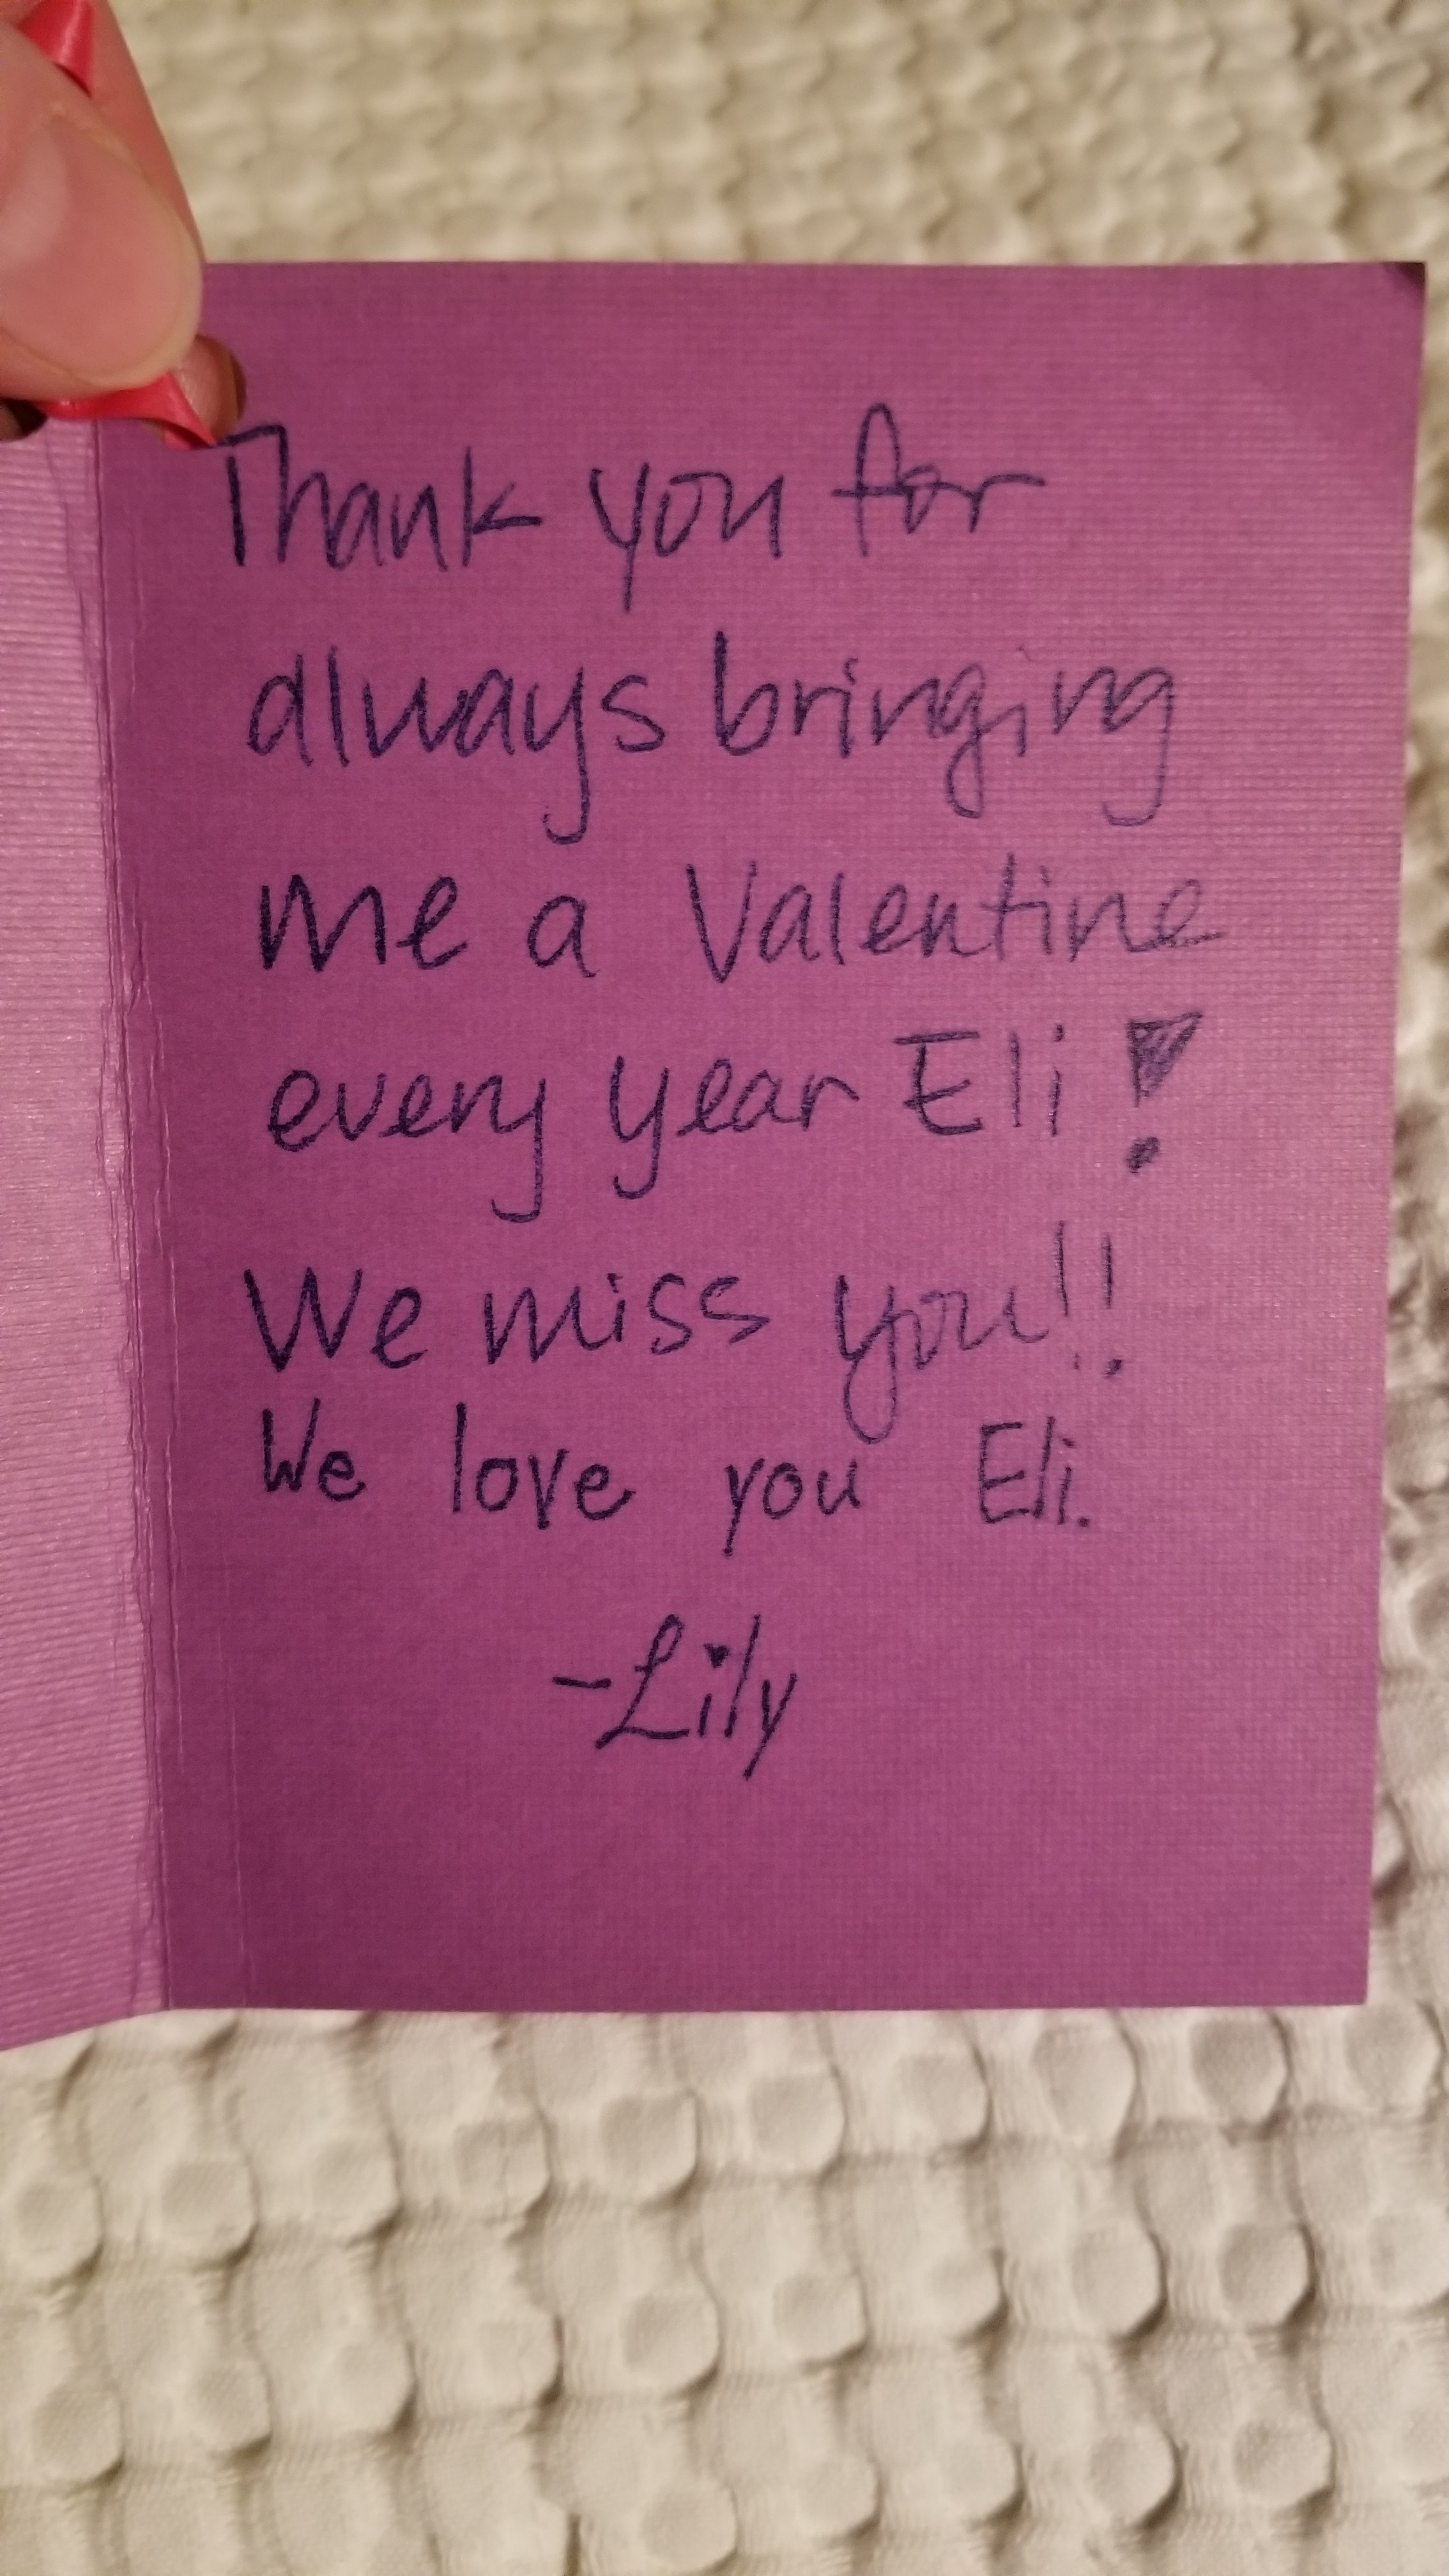 Thank you for
always bringing
me a Valentine
every year Eli!
We miss you!!
We love you Eli.
-Lily